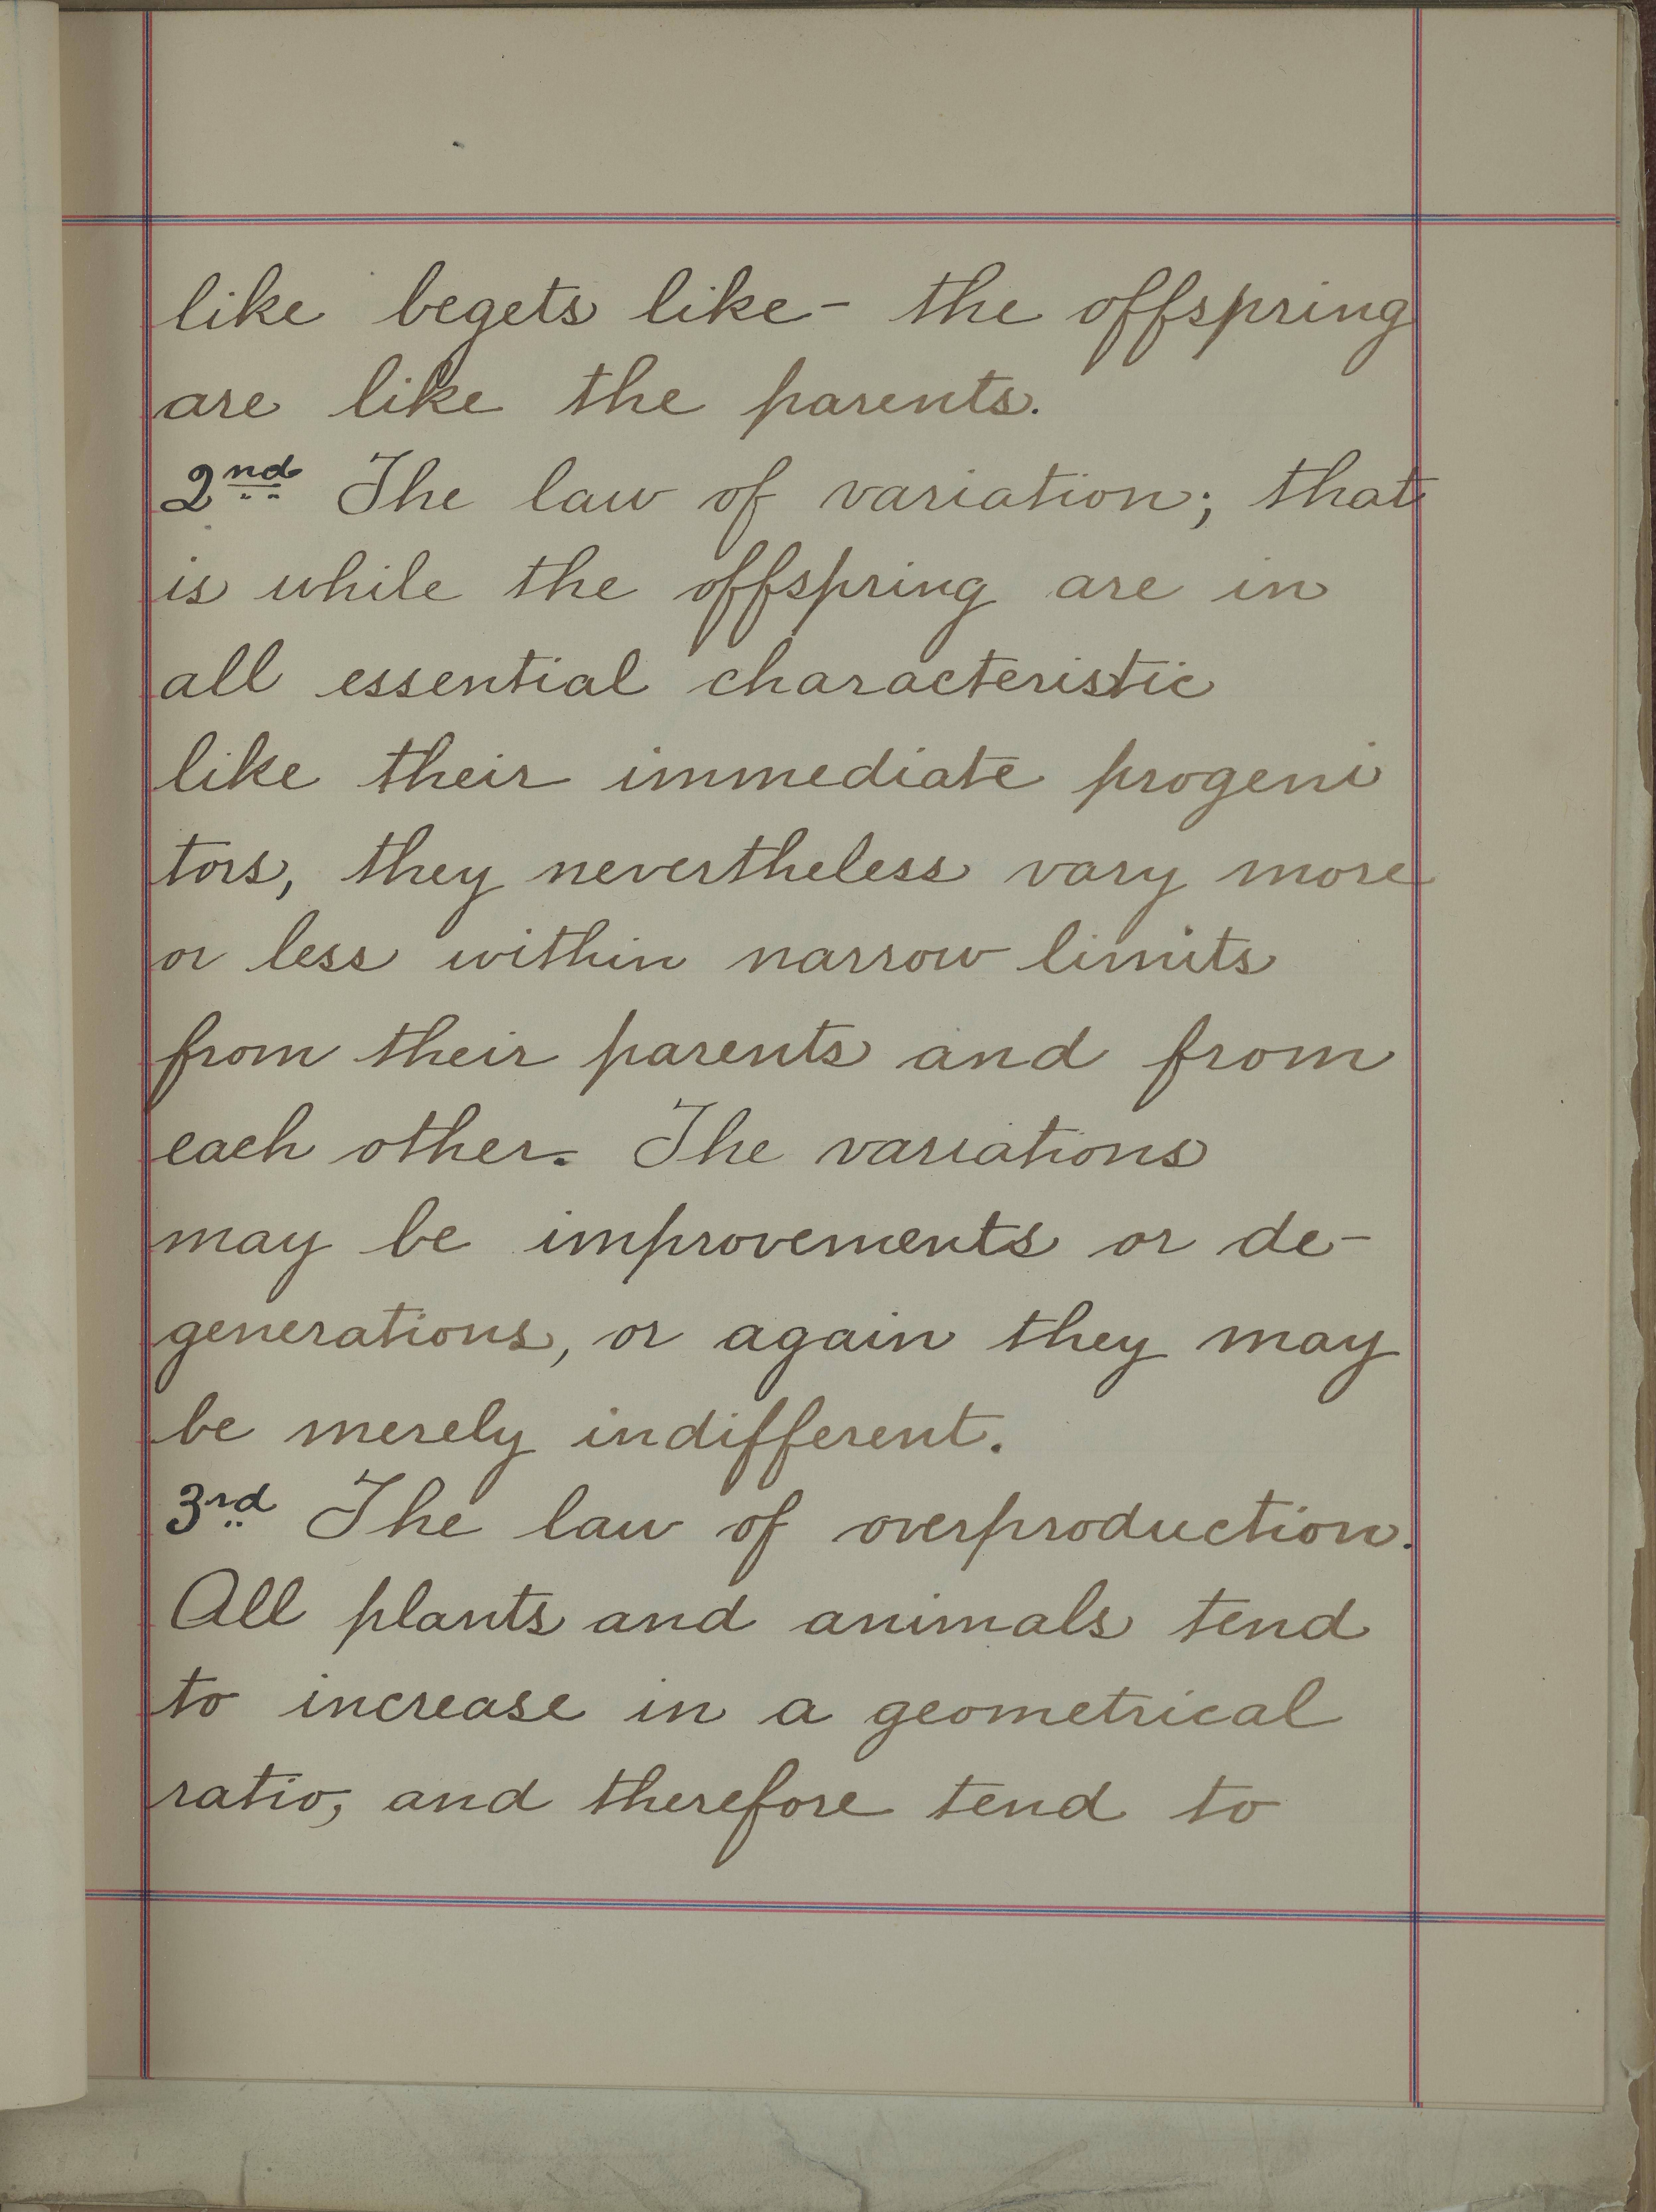 like begets like - the offspring
are like the parents.
2nd The law of variation; that
is while the offspring are in
all essential characteristic
like their immediate progeni
tors, they nevertheless vary more
or less within narrow limits
from their parents and from
each other. The variations
may be improvements or de-
generations, or again they may
be merely indifferent.
3rd The law of overproduction.
All plants and animals tend
to increase in a geometrical
ratio, and therefore tend to